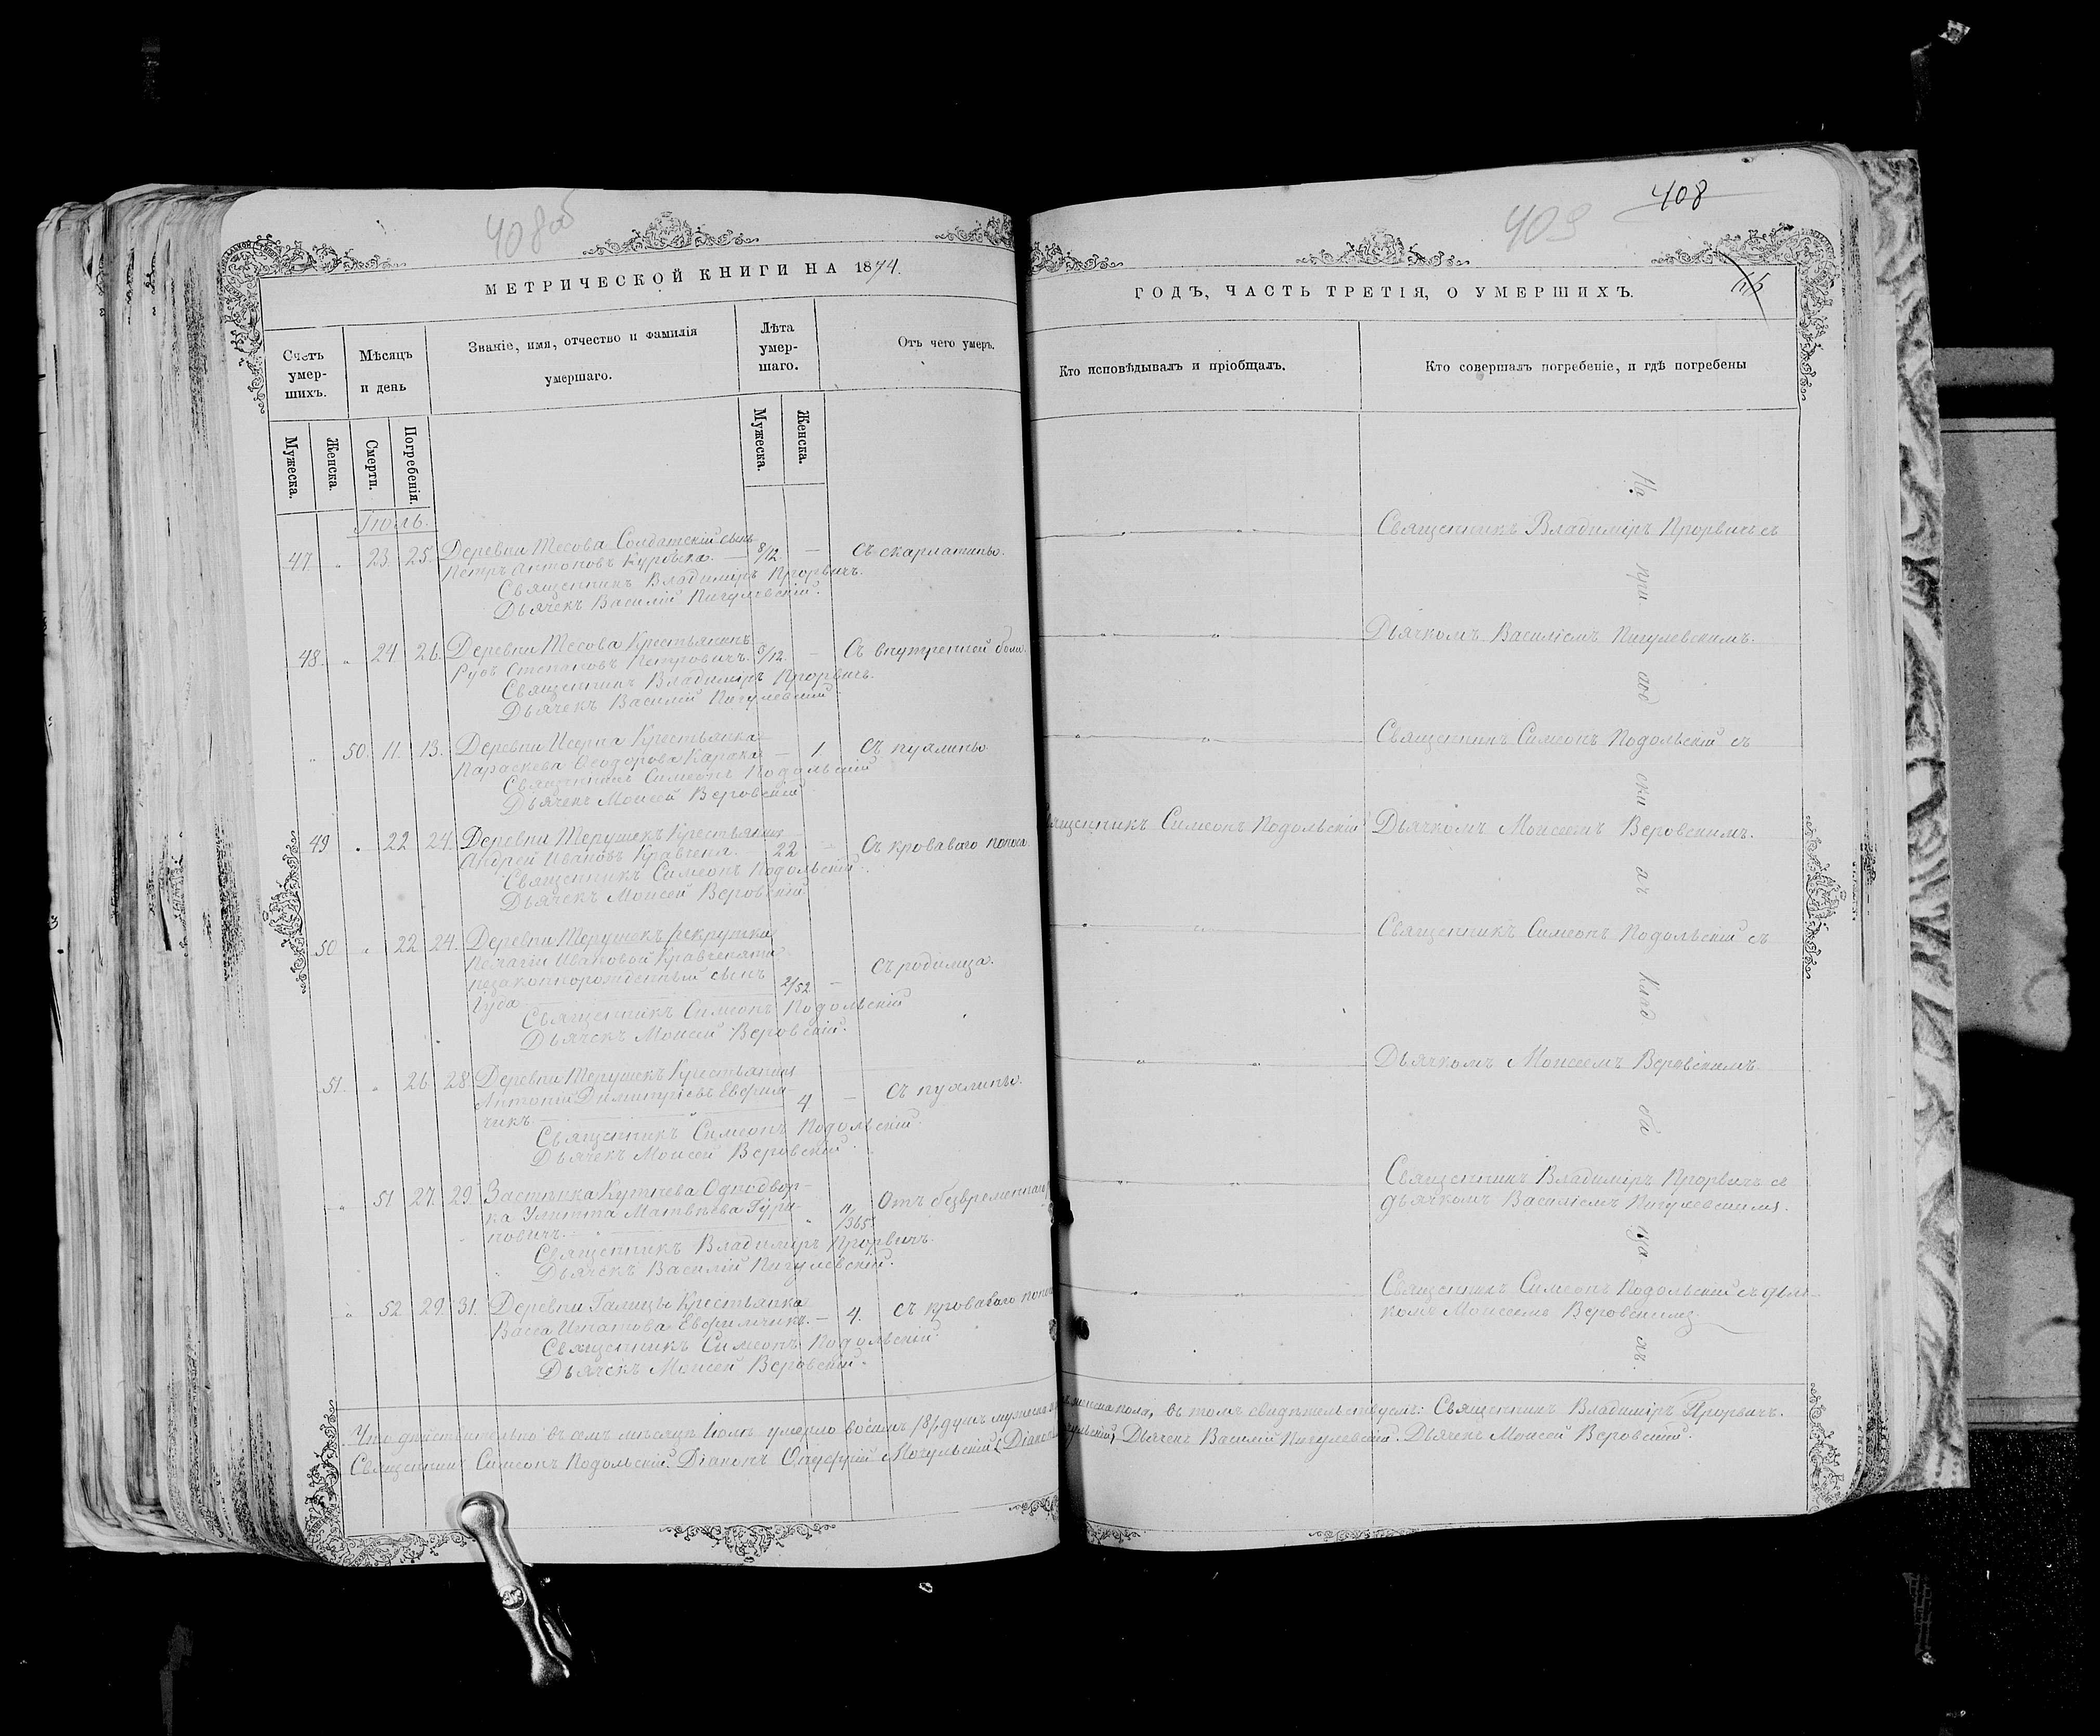 408об
МЕТРИЧЕСКОЙ КНИГИ НА 1874.
Счетъ умер-шихъ.
Мѣсяцъ и день
Званіе, имя, отчество и фамилія
умершаго.
Лѣта умер-шаго.
Отъ чего умеръ.
Мужеска.
Женска.
Смерти.
Погребенія.
Мужеска.
Женска.
Іюль.
47 „ 23. 25. Деревни Тесова Солдатскій сынъ
Петръ Антоновъ — 8/12. — Съ скарлатины.
Священникъ Владиміръ Прорвичъ.
Дьячекъ Василій Пигулевскій.
48. „ 24 26. Деревни Тесова Крестьянинъ
Степановъ Петровичъ. /12. — Съ внутренней боли.
Священникъ Владиміръ Прорвичъ.
Дьячекъ Василій Пигулевскій.
„ 50. 11. 13. Деревни Крестьянка
Параскева Ѳеодорова — 1. Съ
Священникъ Симеонъ Подольскій
Дьячекъ Моисей Веровскій
49 „ 22 24. Деревни Терушекъ Крестьянинъ
Андрей Ивановъ Кравченя. 22 — Съ кроваваго поноса.
Священникъ Симеонъ Подольскій.
Дьячекъ Моисей Веровскій
50 „ 22 24. Деревни Терушекъ рекрутки
Пелагіи Ивановой
незаконнорожденный сынъ
Іуда 2/52 — Съ родимца.
Священникъ Симеонъ Подольскій
Дьячекъ Моисей Веровскій.
51. „ 26. 28. Деревни Терушекъ Крестьянинъ
Антоній Димитріевъ Ефим-
чикъ. 4 — Съ
Священникъ Симеонъ Подольскій.
Дьячекъ Моисей Веровскій.
„ 51 27. 29. Застѣнка Кутнева Однодвор-
ка Улитта Матвѣева Гури-
новичъ. „ 11/365. Отъ
Священникъ Владиміръ Прорвичъ.
Дьячекъ Василій Пигулевскій.
„ 52 29. 31. Деревни Галицы Крестьянка
Васса Игнатова — 4. Съ кроваваго поноса
Священникъ Симеонъ Подольскій.
Дьячекъ Моисей Веровскій.
Что дѣйствительно въ семъ мѣсяцѣ Іюлѣ умерло восемь /8/ душъ
Священникъ Симеонъ Подольскій. Діаконъ Онуфрій Могульскій.
408
409
ГОДЪ, ЧАСТЬ ТРЕТІЯ, О УМЕРШИХЪ.
Кто исповѣдывалъ и пріобщалъ.
Кто совершалъ погребеніе, и гдѣ погребены
Священникъ Владиміръ Прорвичъ съ
Дьячкомъ Василіемъ Пигулевскимъ.
Священникъ Симеонъ Подольскій съ
Священникъ Симеонъ Подольскій Дьячкомъ Моисеемъ Веровскимъ.
Священникъ Симеонъ Подольскій съ
Дьячкомъ Моисеемъ Веровскимъ.
Священникъ Владиміръ Прорвичъ съ
дьячкомъ Василіемъ Пигулевскимъ.
Священникъ Симеонъ Подольскій съ дьяч-
комъ Моисеемъ Веровскимъ.
На при
кладбищахъ.
пола, въ томъ свидѣтельствуемъ: Священникъ Владиміръ Прорвичъ.
Дьячекъ Василій Пигулевскій. Дьячекъ Моисей Веровскій.